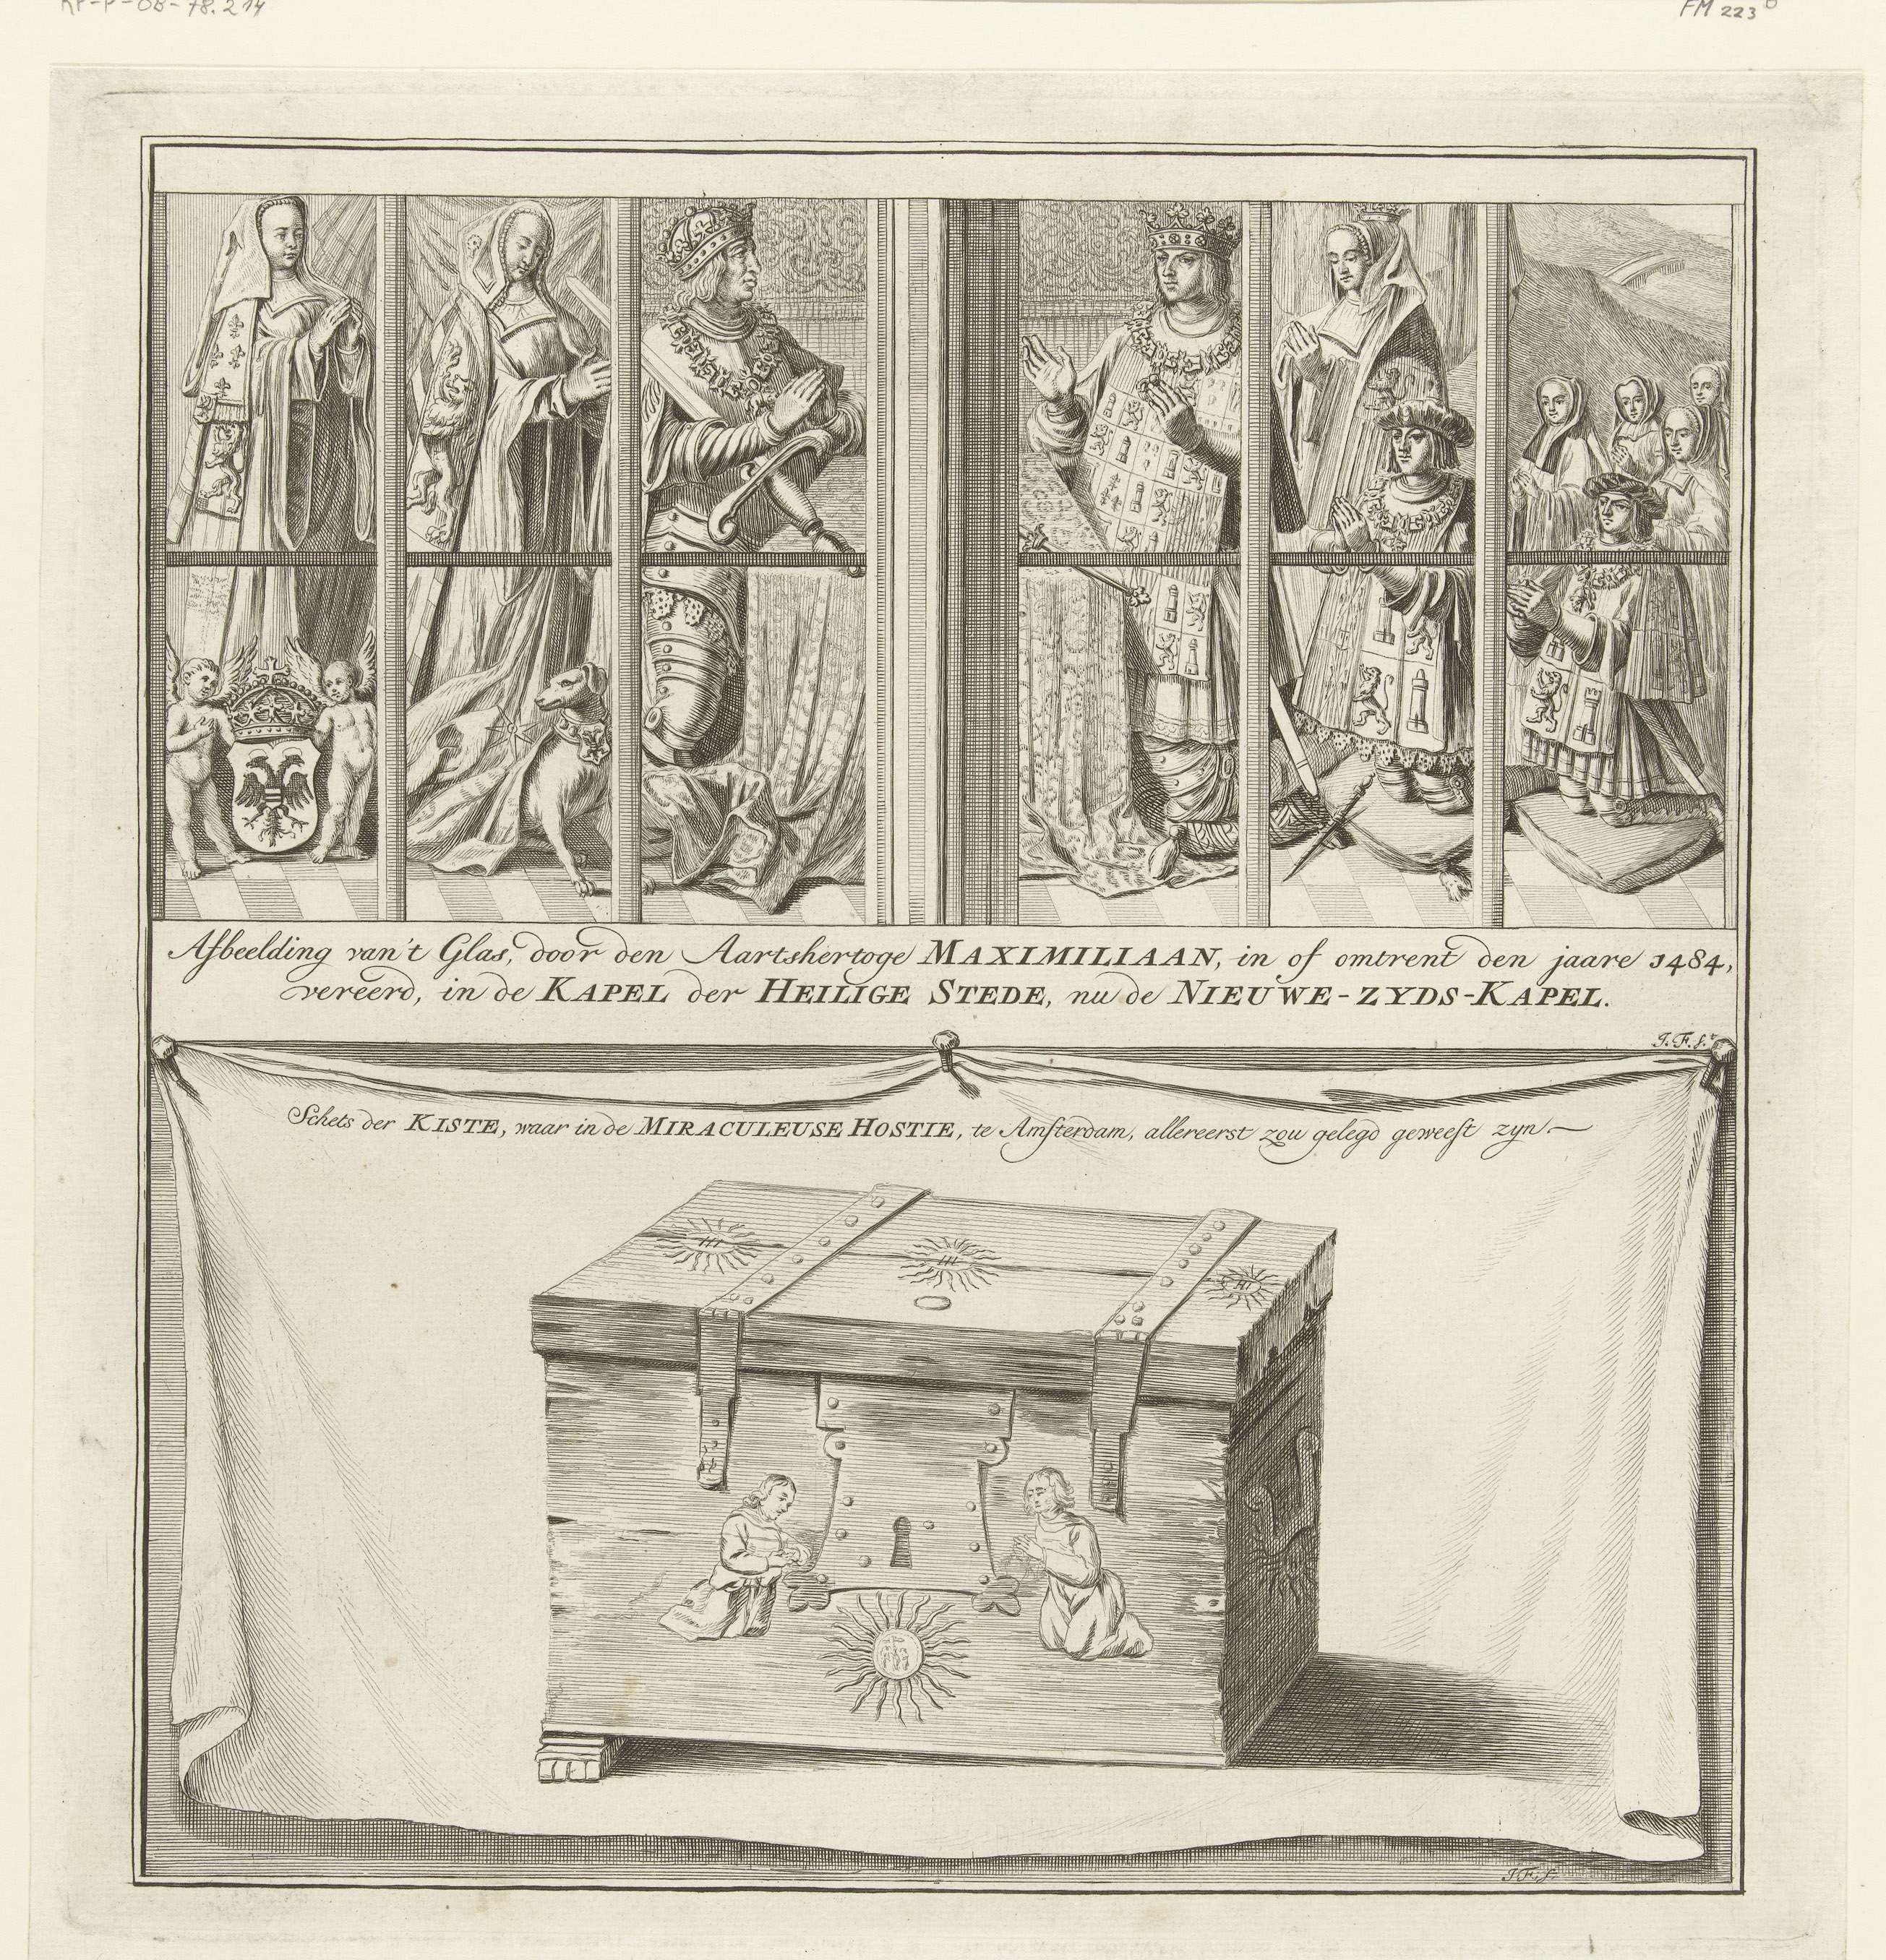 RP-P-OB-78.214
FM 223 b
Afbeelding van't Glas, door den Aartshertoge MAXIMILIAAN, in of omtrent den jaare 1484,
vereerd, in de KAPEL der HEILIGE STEDE, nu de NIEUWE-ZYDS-KAPEL.
J. F. f.
Schets der KISTE, waar in de MIRACULEUSE HOSTIE, te Amsterdam, allereerst zou gelegd geweest zyn.
J F. f.